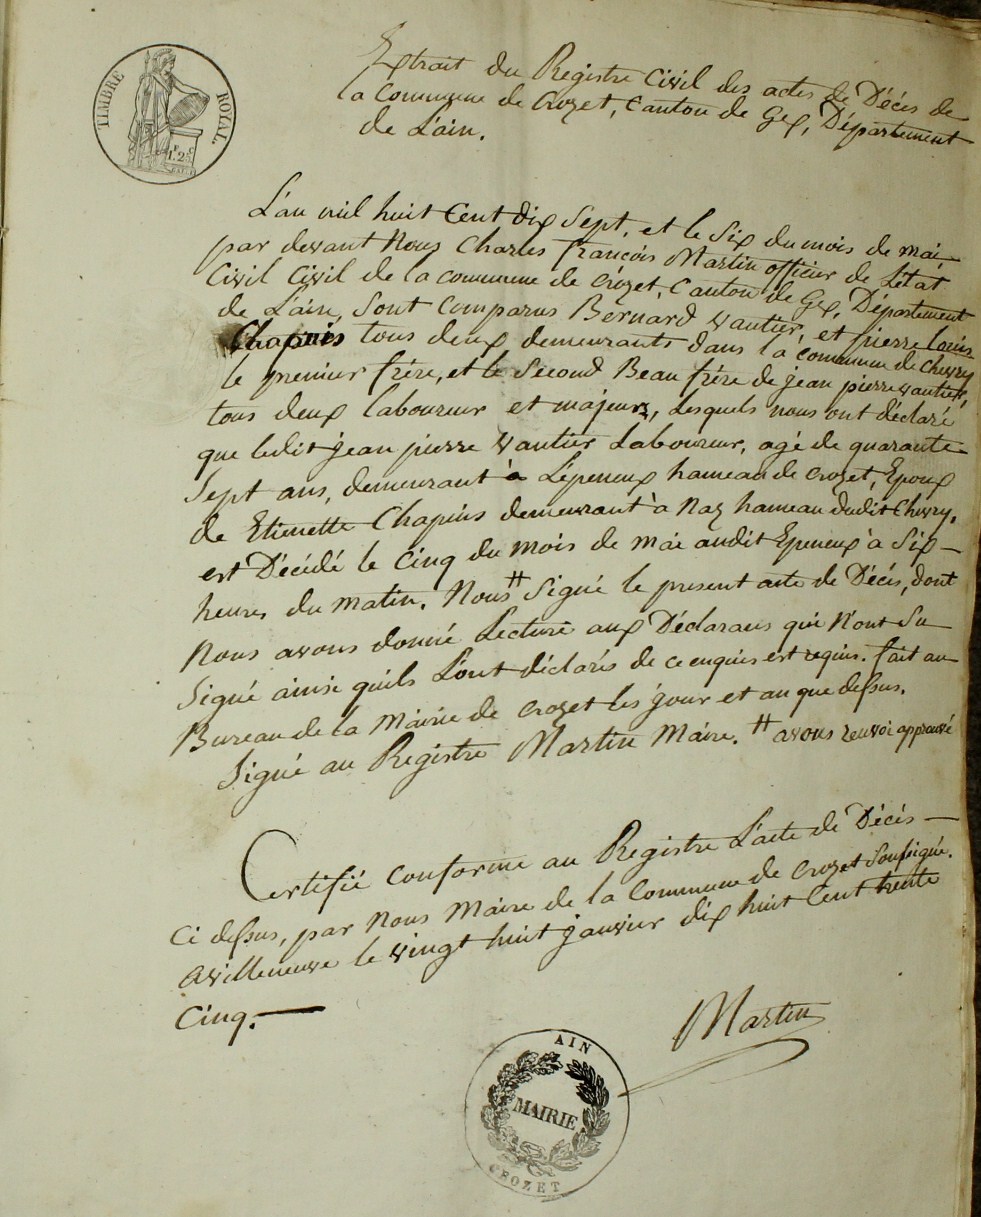 TIMBRE ROYAL.
1.25
Extrait du Registre Civil des actes de Décés de
la Commune de Crozet, Canton de Gex, Département
de L'ain.
L'an mil huit Cent dix Sept, et le Six du mois de mai
par devant Nous Charles françois Martin officier de L'état
Civil Civil de la commune de Crozet, Canton de Gex, Département
de L'ain, Sont Comparus Bernard Vautier, et pierre Louis
Chapuis tous deux demeurants dans la commune de Chevry
le premier frère, et le Second Beau frère de jean pierre vautier,
tous deux laboureur et majeurs, Lesquels nous ont déclaré
que ledit jean pierre Vautier Laboureur, agé de quarante
Sept ans, demeurant à L'épeneux hameau de Crozet, Epoux
de Etienette Chapuis demeurant à Naz hameau dudit Chevry,
est Décédé le Cinq du mois de mai audit Epeneux à Six
heures du matin. Nous # Signé le present acte de Décés, dont
Nous avons donné Lecture aux Déclarans qui N'ont Su
Signé ainsi quils L'ont déclarés de ce enquis et requis. fait au
Bureau de la Mairie de Crozet les jour et an que dessus.
Signé au Registre Martin Maire. # avons renvoi approuvé
Certifié conforme au Registre L'acte de Décés
Ci dessus, par Nous Maire de la Commune de Crozet Soussigné.
avilleneuve le vingt huit janvier dix huit Cent trente
Cinq.
Martin
AIN
MAIRIE
CROZET